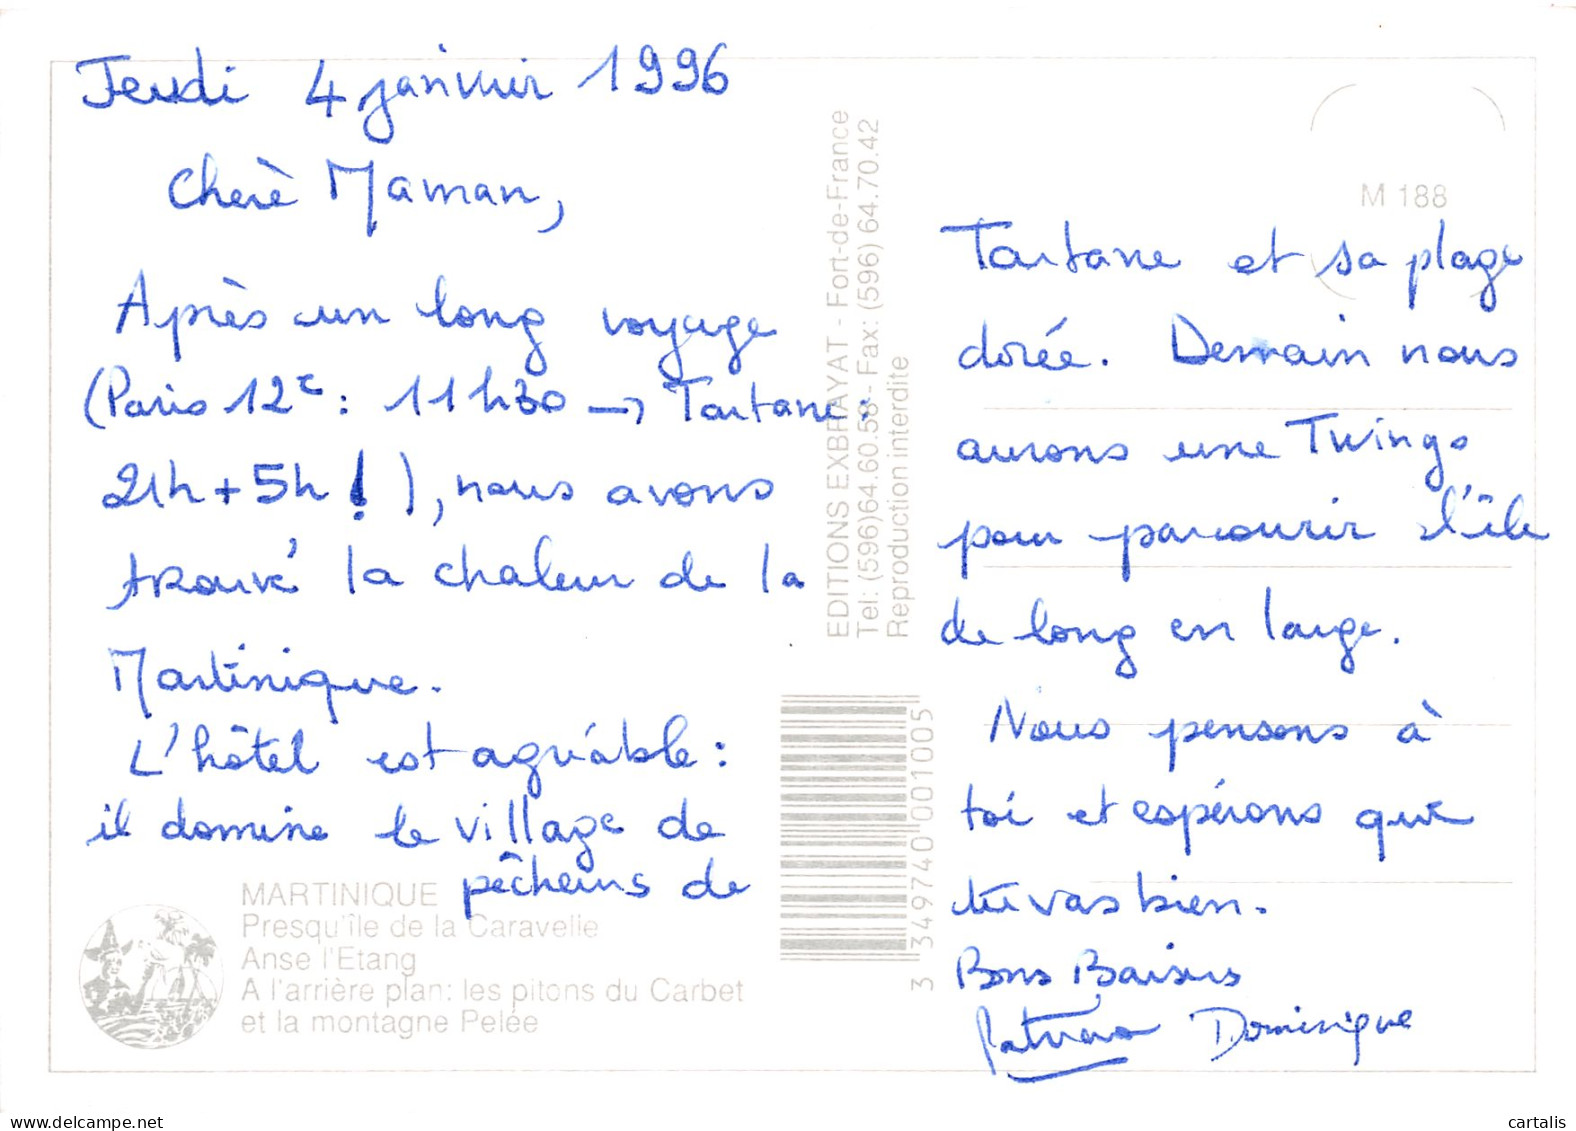 Jeudi 4 janvier 1996
Chère Maman,
Après un long voyage
(Paris 12e : 11h30 → Tartane :
21h + 5h !), nous avons
trouvé la chaleur de la
Martinique.
L'hôtel est agréable :
il domine le village de
pêcheurs de
Tartane et sa plage
dorée. Demain nous
aurons une Twingo
pour parcourir l'île
de long en large.
Nous pensons à
toi et espérons que
tu vas bien.
Bons Baisers
Dominique
M 188
EDITIONS EXBRAYAT - Fort-de-France
Tel: (596)64.60.58 - Fax: (596) 64.70.42
Reproduction interdite
3 349740 001005
MARTINIQUE
Presqu'île de la Caravelle
Anse l'Etang
A l'arrière plan: les pitons du Carbet
et la montagne Pelée
delcampe.net
cartalis